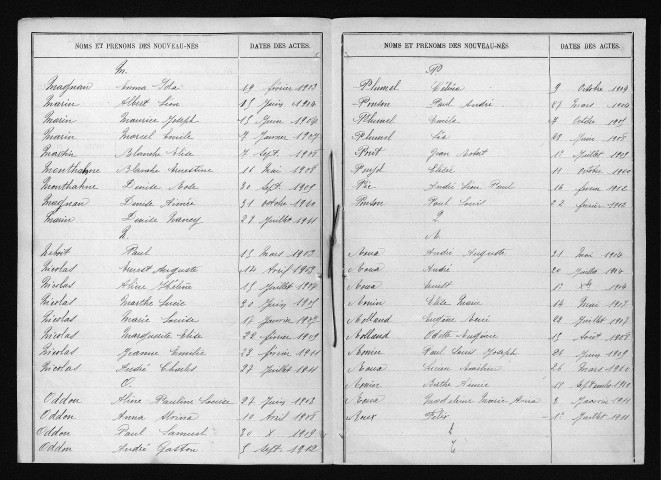 NOMS ET PRÉNOMS DES NOUVEAU-NÉS DATES DES ACTES.
M.
Magnan Emma Ida 19 février 1903
Marin Albert Léon 15 Juin 1904
Marin Maurice Joseph 15 Juin 1904
Marin Marcel Emile 7 Janvier 1907
Martin Blanche Elise 7 Sept. 1908
Monthahne Blanche Ernestine 16 Mai 1908
Monthahne Denise Rose 30 Sept. 1909
Magnan Denise Aimée 31 octobre 1910
Marin Denise Nancy 21 Juillet 1911
N.
Paul 15 Mars 1903
Nicolas Ernest Auguste 14 Avril 1903
Nicolas Aline Hélène 15 Juillet 1904
Nicolas Marthe Lucie 20 Juin 1905
Nicolas Marie Louise 17 Janvier 1907
Nicolas Marguerite Elise 28 février 1909
Nicolas Jeanne Emilie 23 février 1911
Nicolas André Charles 27 Juillet 1911
O.
Oddon Aline Pauline Louise 27 Juin 1903
Oddon Anna 10 Avril 1908
Oddon Paul Samuel 30 X 1909
Oddon André Gaston 5 Sept. 1912
NOMS ET PRÉNOMS DES NOUVEAU-NÉS. DATES DES ACTES.
P
Plumel 9 Octobre 1904
Ponson Paul André 27 Mars 1904
Plumel Emile 7 Octobre 1905
Plumel Léa 28 Juin 1908
Jean Robert 15 Juillet 1909
Elisée 18 Octobre 1910
Pic André Léon Paul 16 février 1912
Ponson Paul Louis 22 février 1912
Q
R
Roua André Auguste 21 Mai 1904
Roua André 20 Juillet 1904
Roua Ernest 1904
Elise Marie 14 Mai 1907
Rolland Eugène Henri 28 Juillet 1907
Rolland Odette Eugénie 15 Août 1908
Paul Louis Joseph 26 Juin 1909
Roua 26 Mars 1910
Berthe Aimée 18 Septembre 1910
Roua Magdeleine Marie Anna 8 Janvier 1911
Roux Félix Juillet 1911